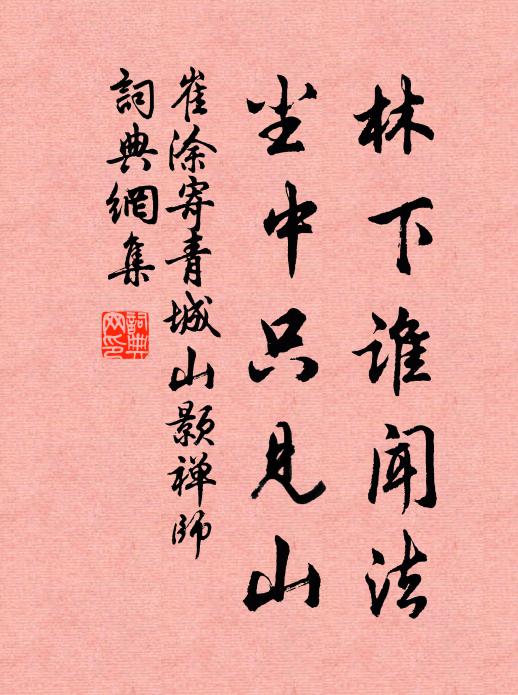 林下谁闻法
尘中只见山
崔涂寄青城山颢禅师
詞典網集
詞典
网印